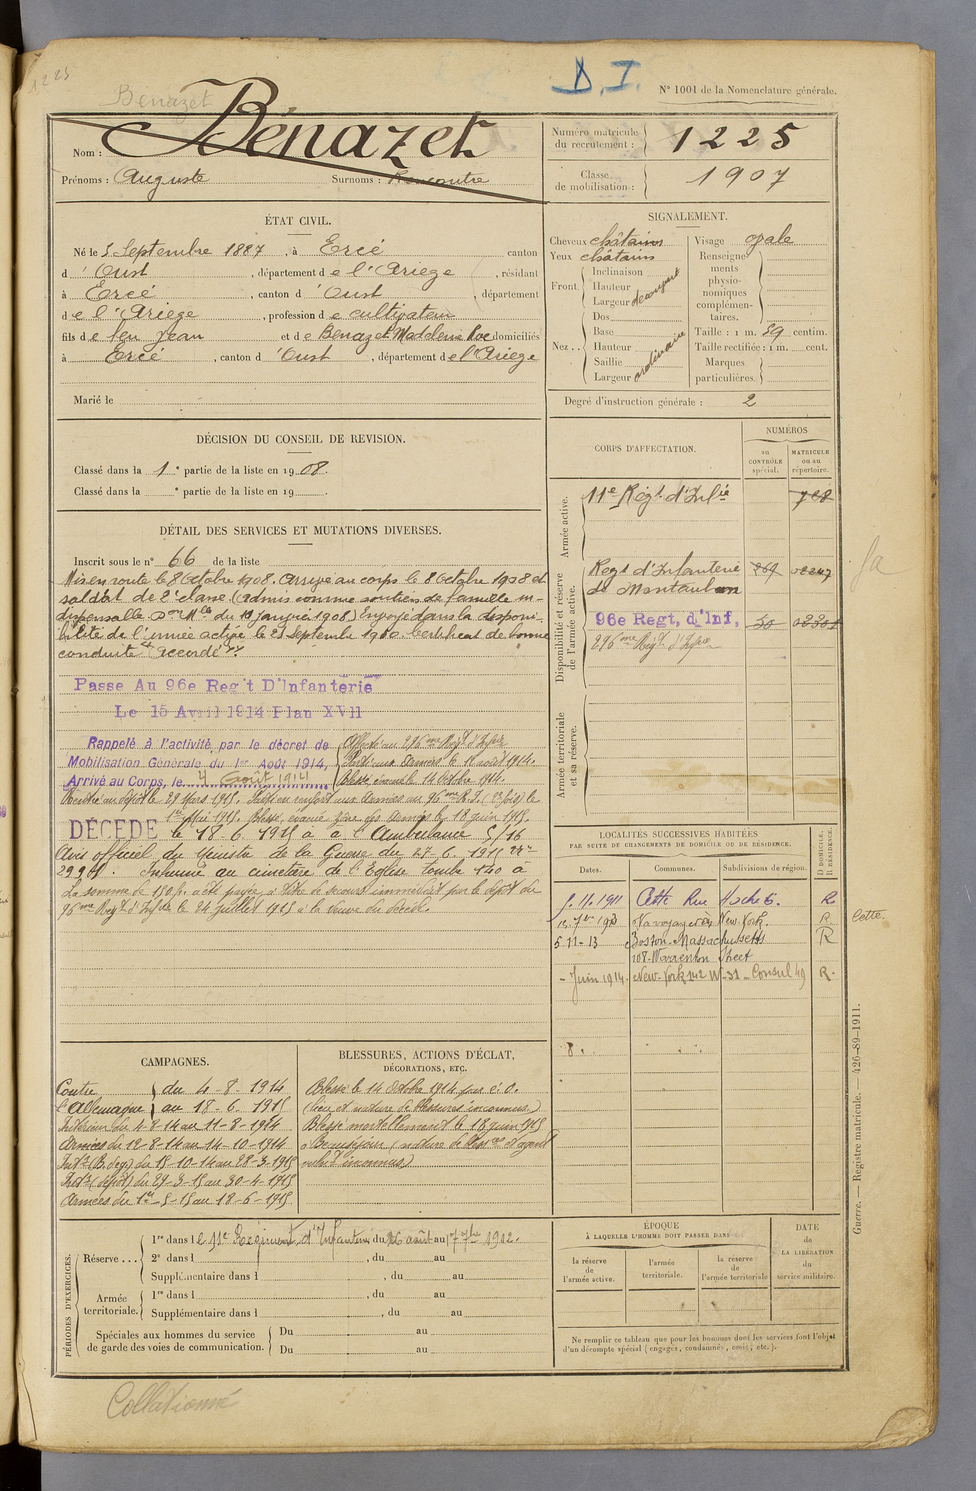 1225
Benazet
D.I.
N° 1001 de la Nomenclature générale.
Nom : Bénazet
Prénoms : Auguste Surnoms : Rencontre
Numéro matricule du recrutement : 1225
Classe de mobilisation : 1907
ÉTAT CIVIL.
Né le 5 Septembre 1887, à Ercé canton
d' Oust, département de l'Ariège, résidant
à Ercé, canton d' Oust, département
de l'Ariège, profession de cultivateur
fils de feu Jean et de Benazet Madeleine domiciliés
à Ercé, canton d' Oust, département de l'Ariège
Marié le
SIGNALEMENT.
Cheveux châtains
Yeux châtains
Front. Inclinaison
Hauteur
Largeur
Nez .. Dos
Base
Hauteur
Saillie
Largeur
ordinaire
Visage ovale
Renseignements physionomiques complémentaires.
Taille : 1 m. 59 centim.
Taille rectifiée : 1 m. cent.
Marques particulières.
Degré d'instruction générale : 2
DÉCISION DU CONSEIL DE REVISION.
Classé dans la 1e partie de la liste en 1908.
Classé dans la e partie de la liste en 19 .
CORPS D'AFFECTATION.
NUMÉROS
au CONTRÔLE spécial.
MATRICULE ou au répertoire.
Armée active.
11e Régt d'Inf.ie
Disponibilité et réserve de l'armée active.
Regt d'Infanterie
de Montauban
96e Regt, d'Inf,
296me Régt d'Infie
Armée territoriale et sa réserve.
DÉTAIL DES SERVICES ET MUTATIONS DIVERSES.
Inscrit sous le n° 66 de la liste
Mis en route le 8 Octobre 1908. Arrivé au corps le 8 Octobre 1908 et
soldat de 2e classe (admis comme soutien de famille in-
dispensable Don Mlle du 10 janvier 1908) Envoyé dans la disponi-
bilité de l'armée active le 25 Septembre 1910. Certificat de bonne
conduite "Accordé"
Passe Au 96e Reg't D'Infanterie
Le 15 Avril 1914 Plan XVII
Rappelé à l'activité par le décret de
Mobilisation Générale du 1er Août 1914,
Arrivé au Corps, le 4 Août 1914
Affecté au 296me Régt d'Infie
Parti aux Armées le 12 août 1914.
Blessé, évacué le 14 Octobre 1914.
Rentré au dépôt le 29 Mars 1915. Parti en renfort aux Armées au 96me R.I. (2e fois) le
1er Mai 1915. Blessé, évacué zône des Armées le 18 juin 1915.
DÉCÉDÉ le 18-6-1915 à l'Ambulance 5/16
Avis officiel du Ministre de la Guerre du 27-6-1915
Inhumé au cimetière de l'Eglise Tombe 140 à
La somme de 150 f. a été payée à titre de secours immédiat par le dépôt du
96me Régt d'Infie le 24 juillet 1915 à la veuve du décédé.
LOCALITÉS SUCCESSIVES HABITÉES
PAR SUITE DE CHANGEMENTS DE DOMICILE OU DE RÉSIDENCE.
Dates. Communes. Subdivisions de région. D DOMICILE. R RÉSIDENCE.
Cette Rue Hoche 6. R
Cette.
Va voyager à New-York. R
5-11-13 Boston-Massachusetts R
108-Warrenton Street
Juin 1914. New-York 142 W-31 - Consul 49 R.
CAMPAGNES.
Contre l'Allemagne du 4-8-1914
au 18-6-1915
Intérieur du 4-8-14 au 11-8-1914
Armées du 12-8-14 au 14-10-1914
Intr (B. de g.) du 15-10-14 au 28-3-1915
Intr (dépôt) du 29-3-15 au 30-4-1915
Armées du 1er-5-15 au 18-6-1915
BLESSURES, ACTIONS D'ÉCLAT,
DÉCORATIONS, ETC.
Blessé le 14 Octobre 1914
(lieu et nature de blessures inconnus.)
Blessé mortellement le 18 juin 1915
à Beauséjour (nature de et agent
inconnus)
PÉRIODES D'EXERCICES.
Réserve ... 1re dans le 11e Régiment d'Infanterie du 16 août au 7 7bre 1912.
2e dans l , du au
Supplémentaire dans l , du au
Armée territoriale. 1re dans l , du au
Supplémentaire dans l , du au
Spéciales aux hommes du service de garde des voies de communication. Du au
Du au
ÉPOQUE
À LAQUELLE L'HOMME DOIT PASSER DANS
la réserve de l'armée active.
l'armée territoriale.
la réserve de l'armée territoriale
DATE de LA LIBÉRATION du service militaire.
Ne remplir ce tableau que pour les hommes dont les services font l'objet
d'un décompte spécial (engagés, condamnés, omis, etc.).
Guerre. — Registre matricule. — 426-89-1911.
Collationné